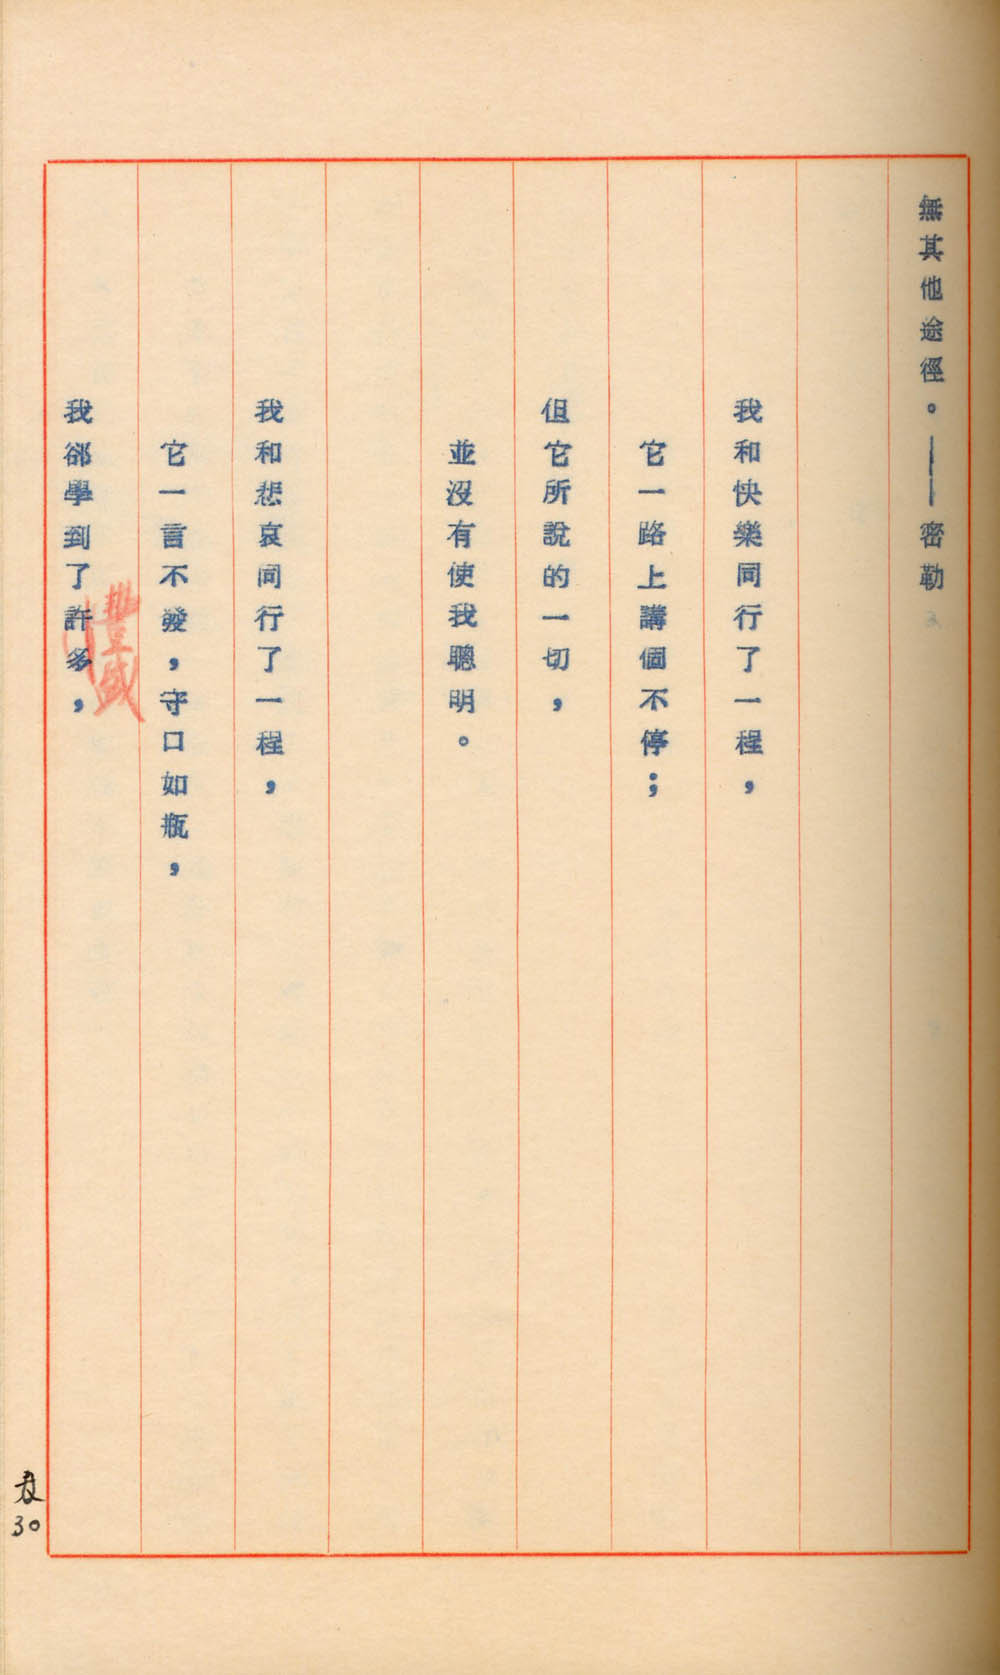 無其他途徑。——密勒
我和快樂同行了一程，
它一路上講個不停；
但它所說的一切，
並沒有使我聰明。
我和悲哀同行了一程，
它一言不發，守口如瓶，
我郤學到了許多，
豐盛
30